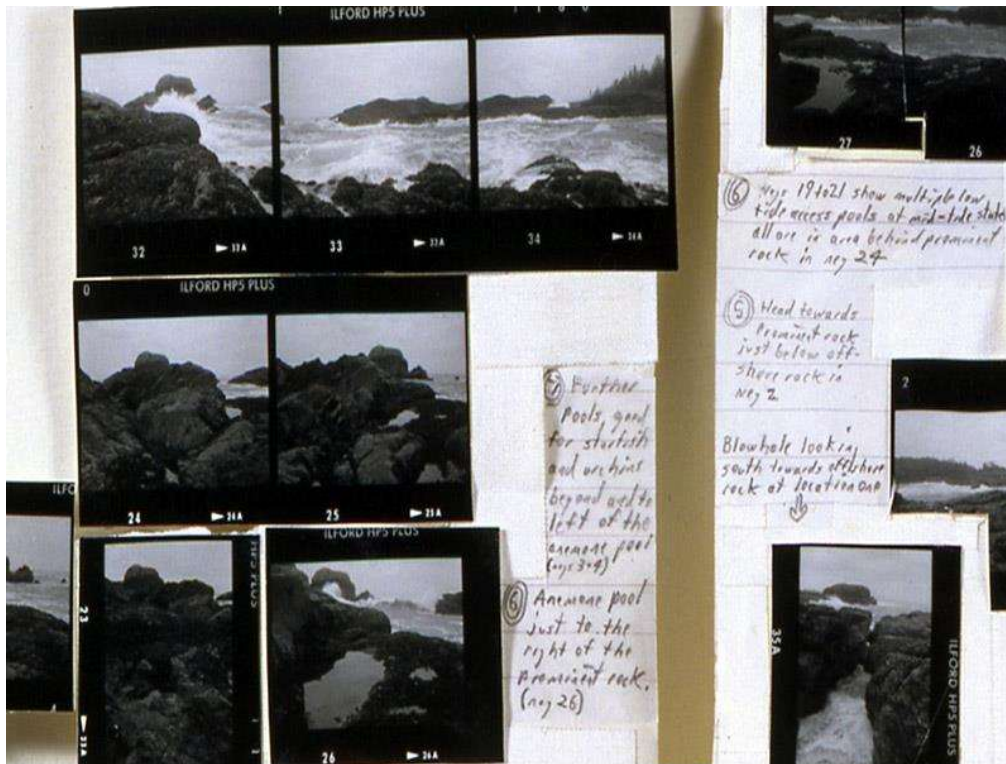 ILFORD HP5 PLUS
32
33A
33
33A
34
34A
0
ILFORD HP5 PLUS
24
24A
25
25A
ILFO
23
23A
HP5 PLUS
ILFORD HP5 PLUS
26
26A
Further
Pools, good
for starfish
and urchins
beyond and to
left of the
anemone pool
(negs 3+4)
6 Anemone pool
just to the
right of the
Prominent rock.
(neg 26)
27
26
6 Negs 19to21 show multiple low
tide access pools at mid-tide state
all are in area behind prominent
rock in neg 24
5 Head towards
Prominent rock
just below off-
shore rock in
Neg 2
Blowhole looking
south towards offshore
rock at location one
2
35A
ILFORD HP5 PLUS